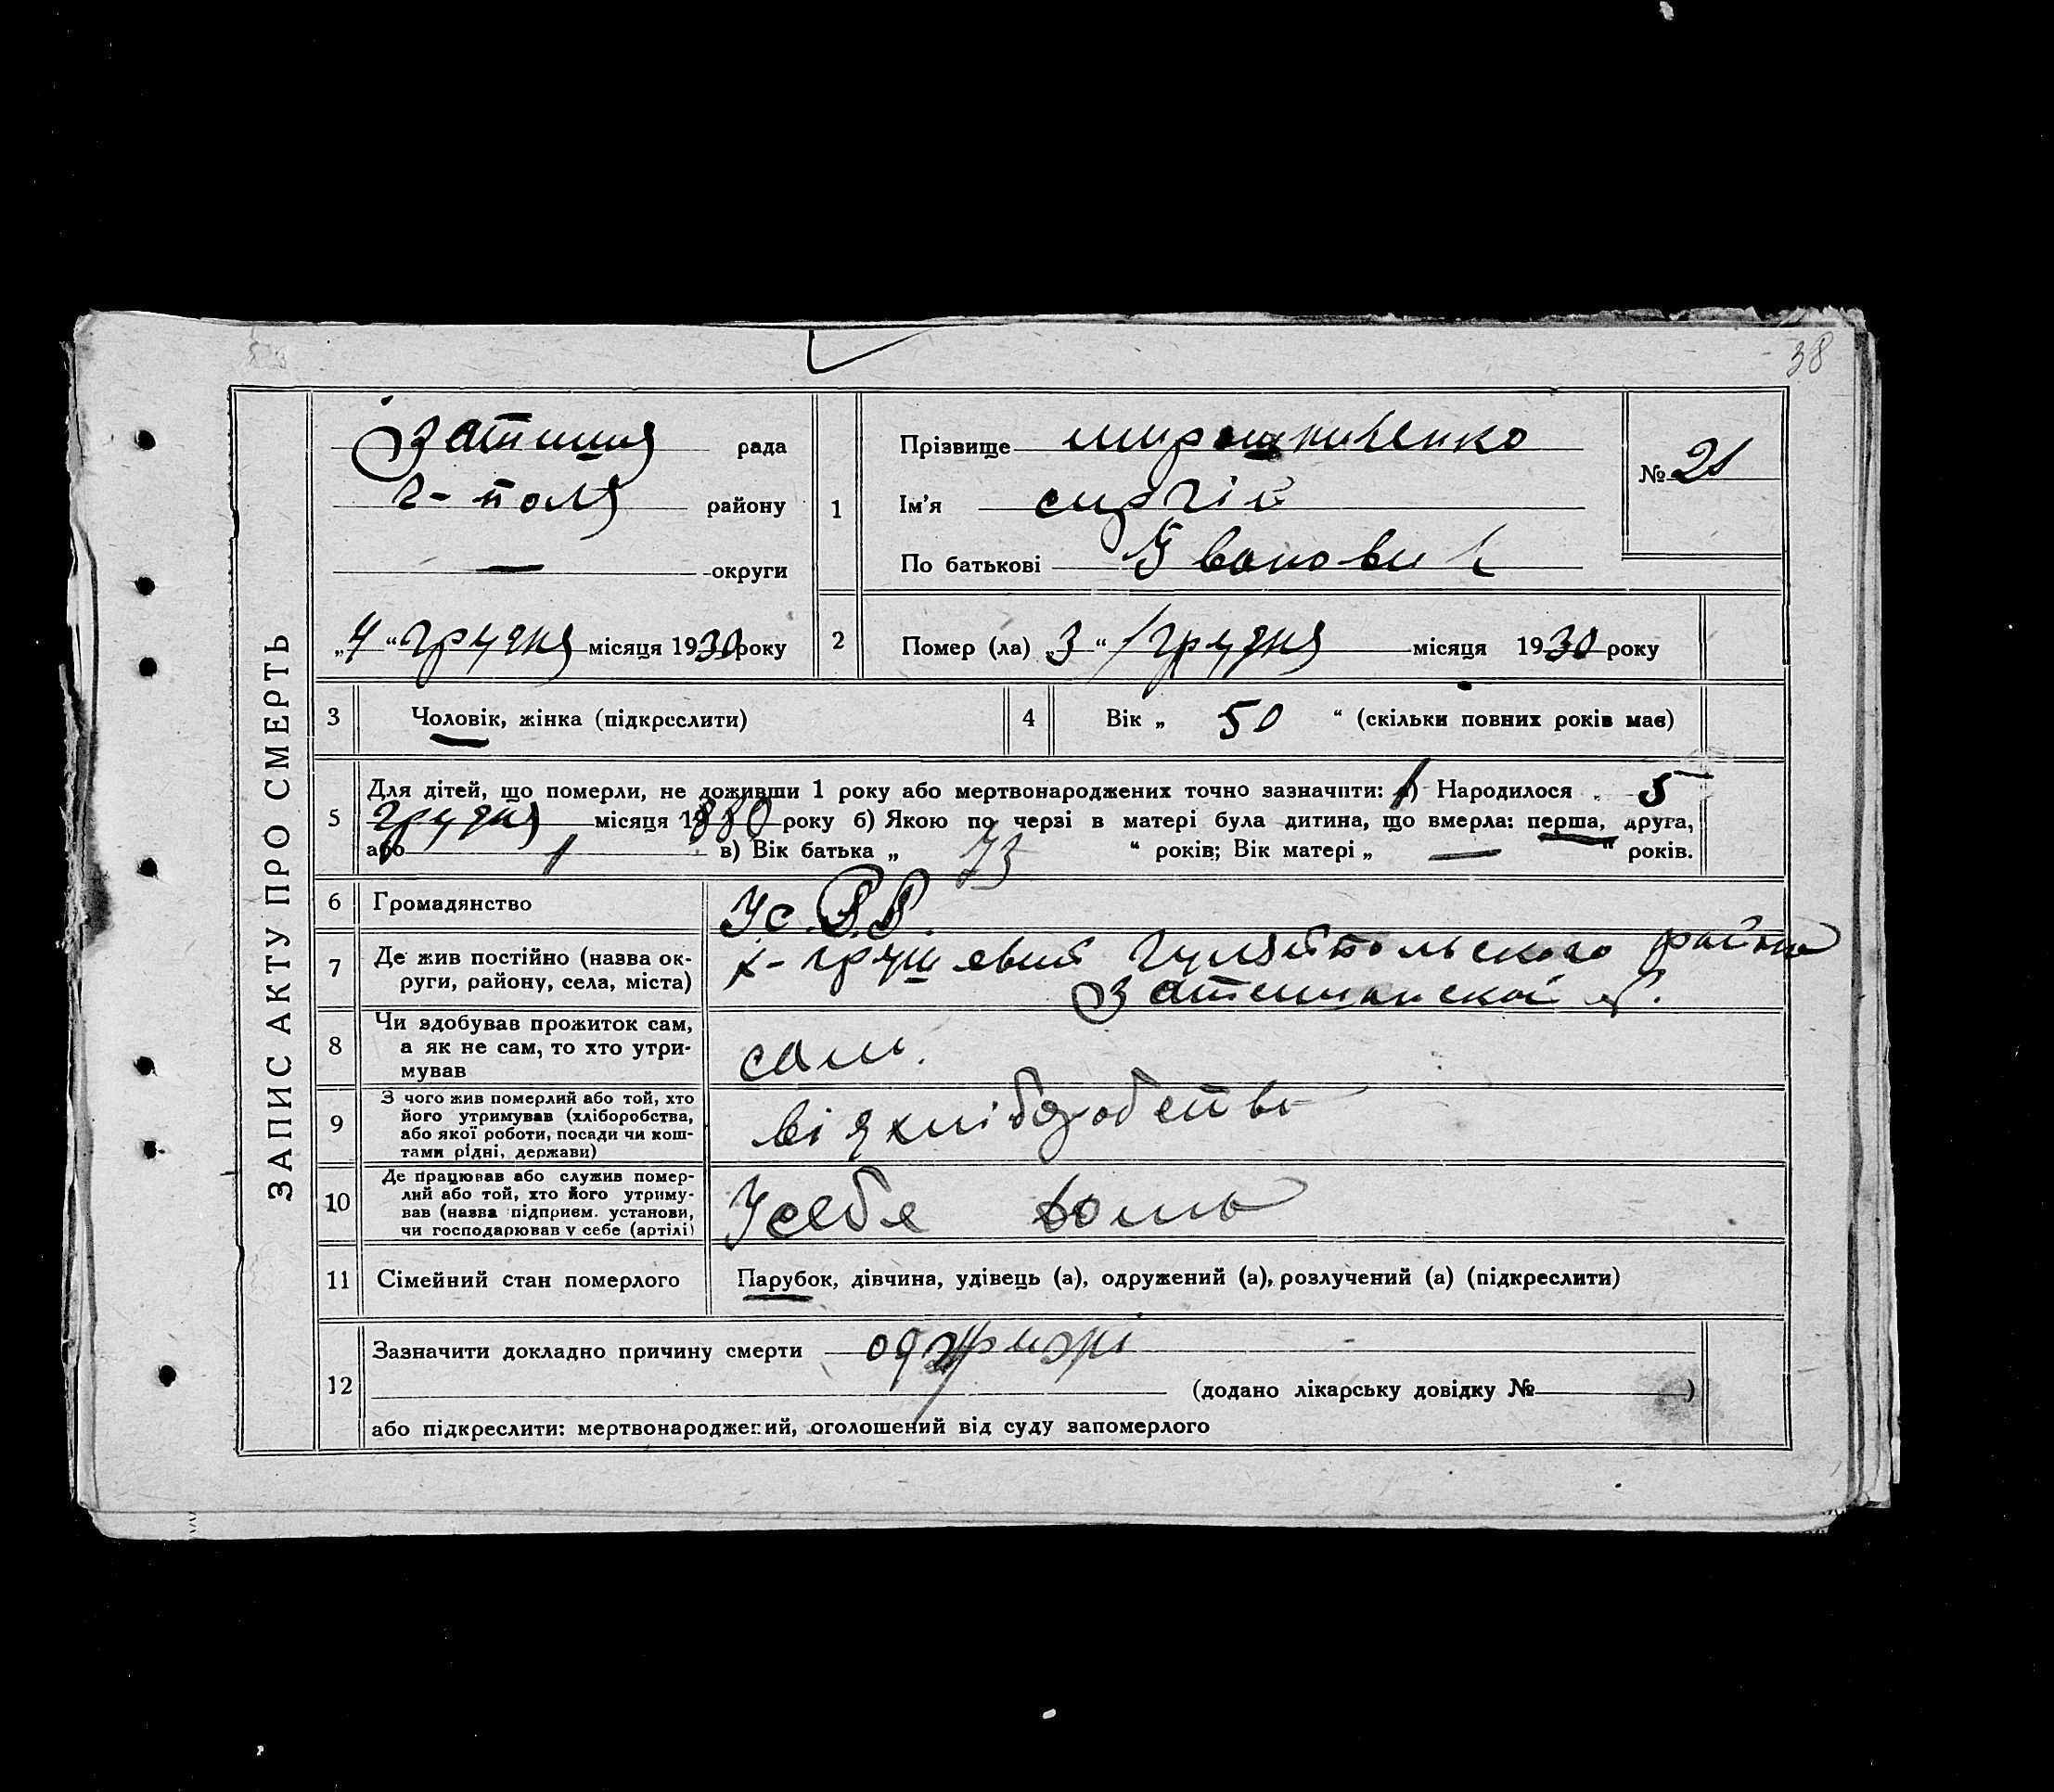 38
ЗАПИС АКТУ ПРО СМЕРТЬ
Затишшя рада
г-поля району
— округи
„4“ грудня місяця 1930 року
1
Прізвище мирошниченко
Ім'я сиргій
По батькові Іванович
№ 21
2
Помер (ла) „3“ грудня місяця 1930 року
3 Чоловік, жінка (підкреслити)
4 Вік „ 50 “ (скільки повних років має)
5
Для дітей, що померли, не доживши 1 року або мертвонароджених точно зазначити: Народилося 5
грудня місяця 1880 року б) Якою по черзі в матері була дитина, що вмерла: перша, друга,
або 1 в) Вік батька „ 73 “ років; Вік матері „ — “ років.
6 Громадянство Ус.Р.Р.
7 Де жив постійно (назва ок-
руги, району, села, міста)
х-грушевий Гуляйпольского района
Затишанской
8 Чи здобував прожиток сам,
а як не сам, то хто утри-
мував
сам.
9 З чого жив померлий або той, хто
його утримував (хліборобства,
або якої роботи, посади чи кош-
тами рідні, держави)
від хліборобства
10 Де працював або служив помер-
лий або той, хто його утриму-
вав (назва підприєм. установи,
чи господарював у себе (артілі)
У себе дома
11 Сімейний стан померлого Парубок, дівчина, удівець (а), одружений (а), розлучений (а) (підкреслити)
12
Зазначити докладно причину смерти од грижі
(додано лікарську довідку № )
або підкреслити: мертвонароджений, оголошений від суду запомерлого